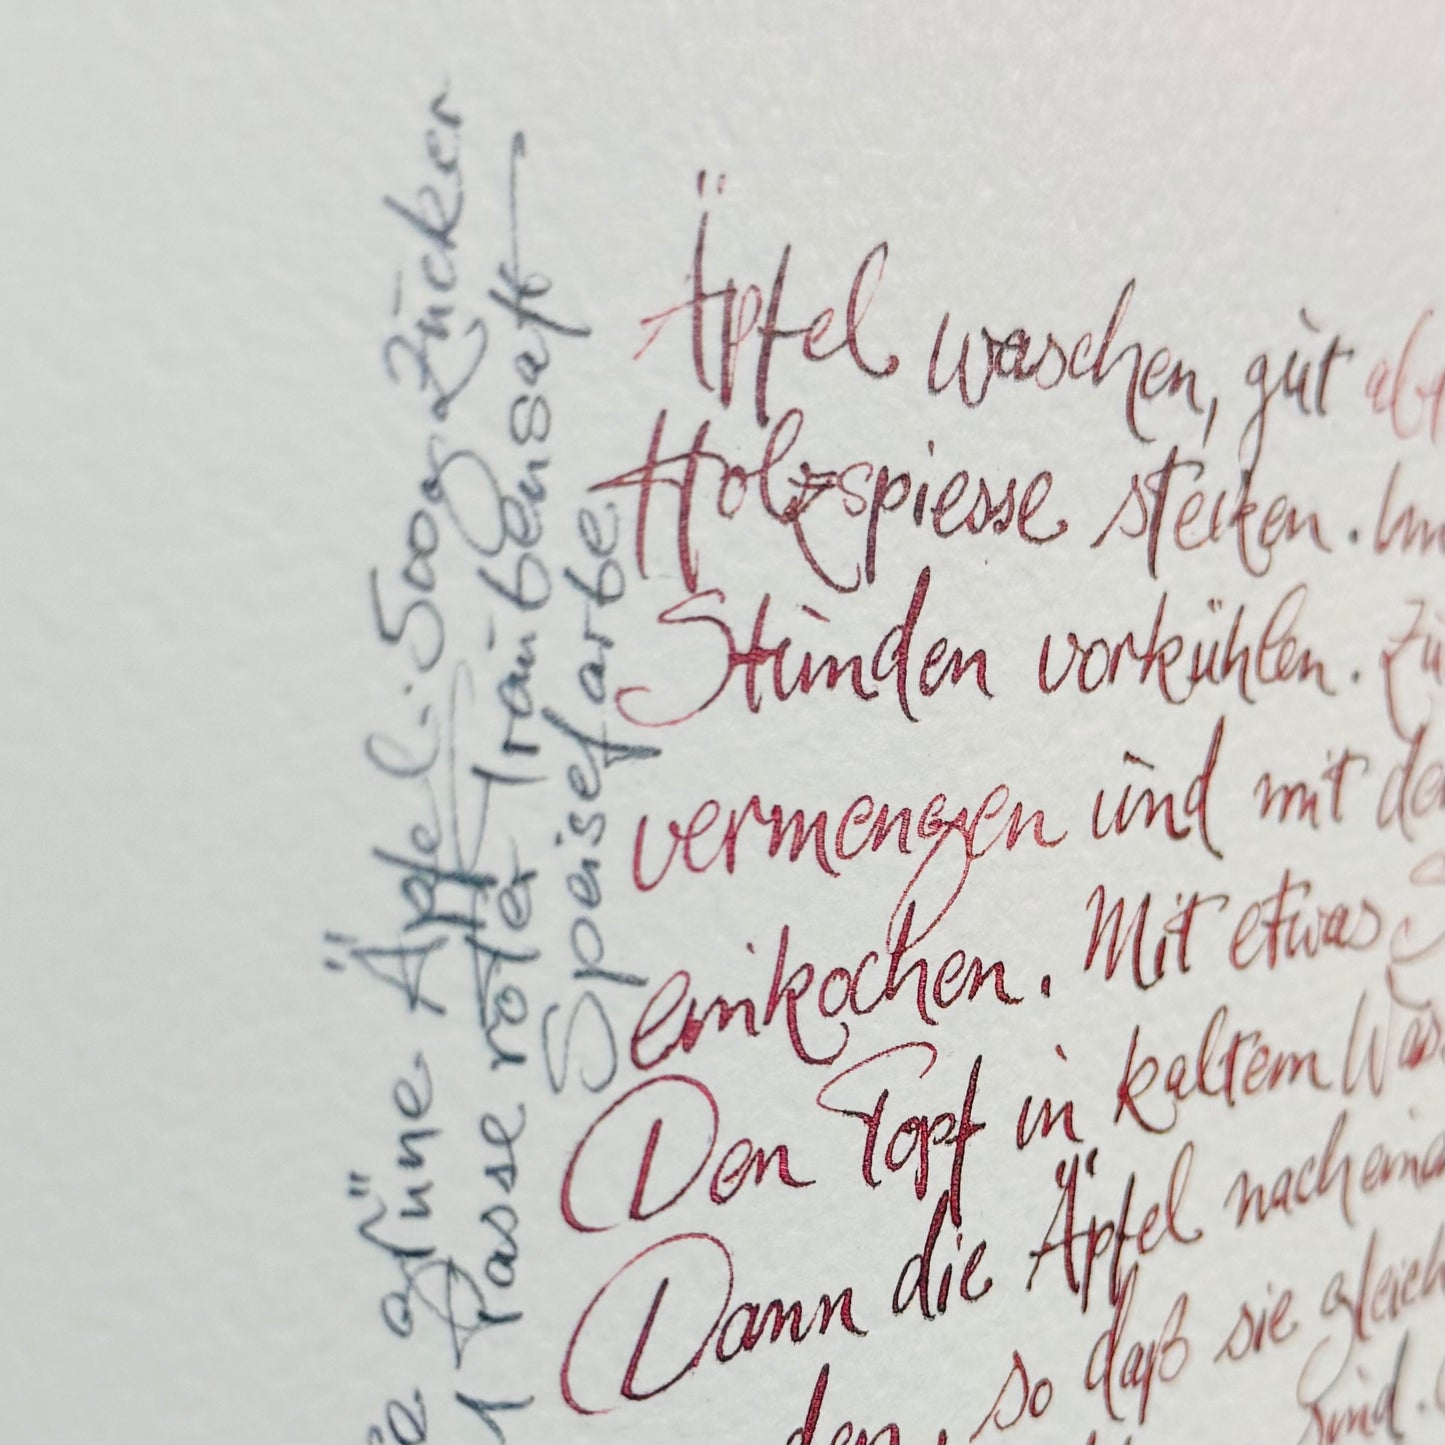 grüne Äpfel. 500g Zucker
1 Tasse roter Traubensaft
Speisefarbe
Äpfel waschen, gut
Holzspiesse stecken. Im
Stunden vorkühlen.
vermengen und mit
einkochen. Mit etwas
Den Topf in kaltem
Dann die Äpfel
den, so daß sie gleich
sind.